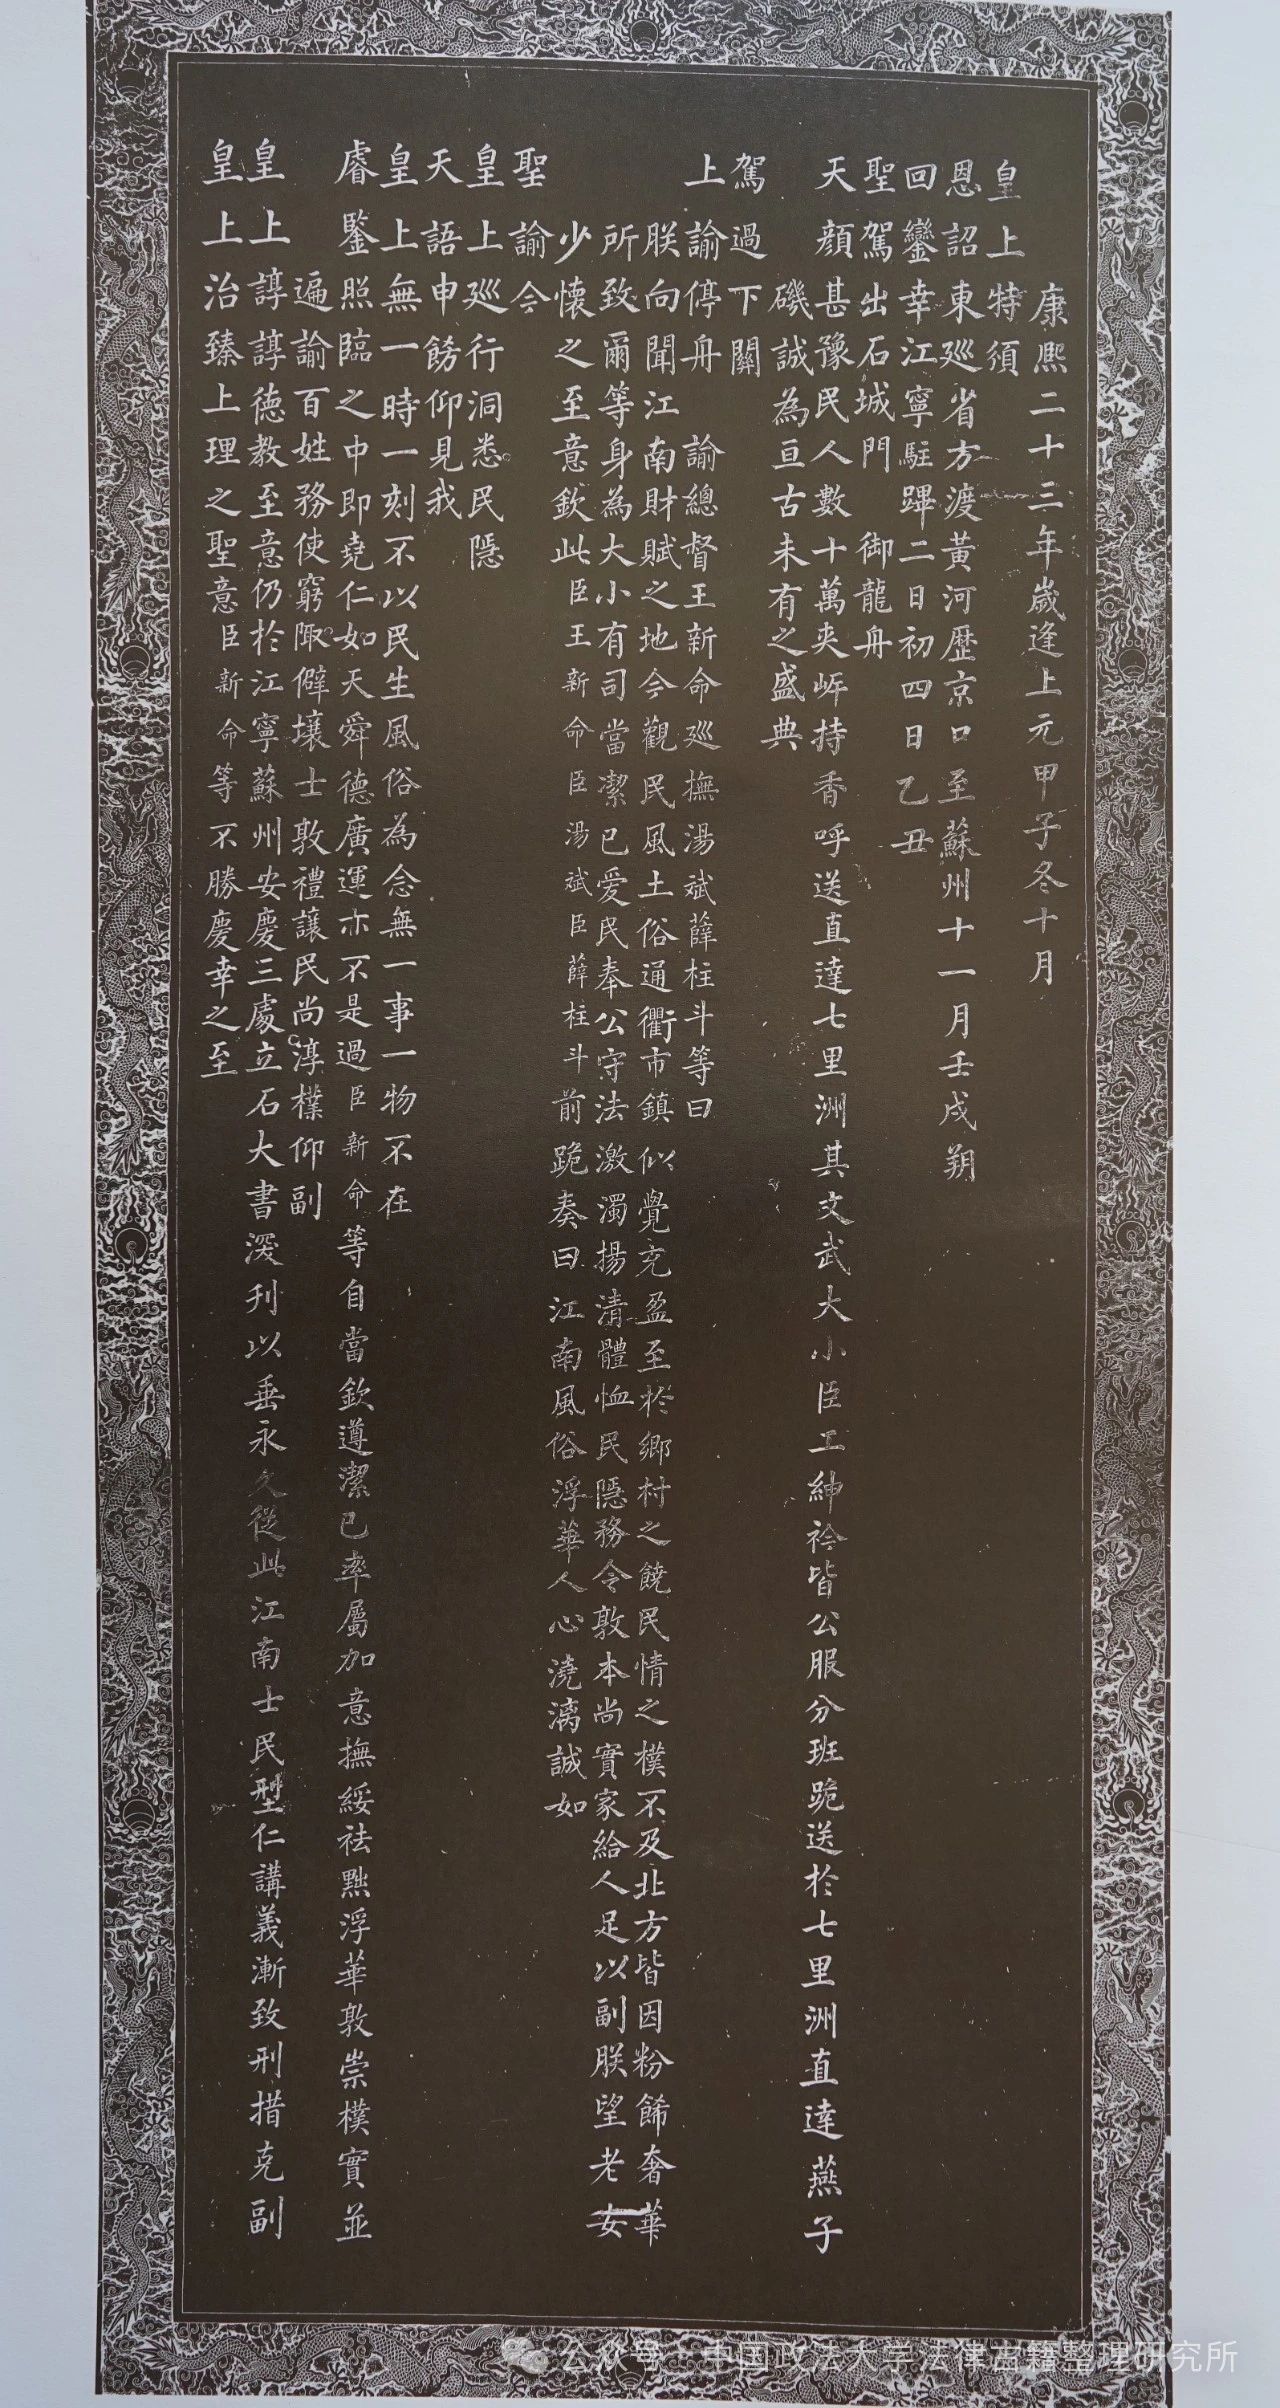 康熙二十三年歲逢上元甲子冬十月
皇上特須
恩詔東廵省方渡黃河歷京口至蘇州十一月壬戌朔
回鑾幸江寧駐蹕二日初四日乙丑
聖駕出石城門　御龍舟
天顏甚豫民人數十萬夾岍持香呼送直達七里洲其文武大小臣工紳衿皆公服分班跪送於七里洲直達燕子
磯誠為亘古未有之盛典
駕過下關
上諭停舟　諭總督王新命廵撫湯斌薛柱斗等曰
朕向聞江南財賦之地今觀民風土俗通衢市鎮似覺充盈至於鄉村之饒民情之樸不及北方皆因粉餙奢華
所致爾等身為大小有司當潔己愛民奉公守法激濁揚清體恤民隱務令敦本尚實家給人足以副朕望老安
少懷之至意欽此臣王新命臣湯斌臣薛柱斗前跪奏曰江南風俗浮華人心澆漓誠如
聖諭今
皇上廵行洞悉民隱
天語申餝仰見我
皇上無一時一刻不以民生風俗為念無一事一物不在
睿鑒照臨之中即堯仁如天舜德廣運亦不是過臣新命等自當欽遵潔己率屬加意撫綏祛黜浮華敦崇樸實並
遍諭百姓務使窮陬僻壤士敦禮讓民尚淳樸仰副
皇上諄諄德教至意仍於江寧蘇州安慶三處立石大書深刊以垂永久從此江南士民型仁講義漸致刑措克副
皇上治臻上理之聖意臣新命等不勝慶幸之至
公众号·中国政法大学法律古籍整理研究所